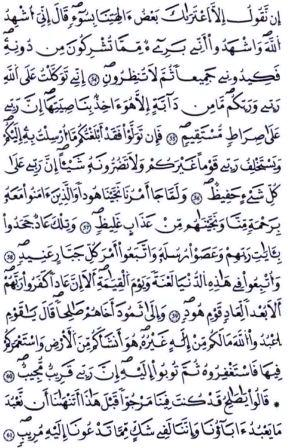 إِن نَّقُولُ إِلَّا اَعْتَر۪ىٰكَ بَعْضُ ءَالِهَتِنَا بِسُوٓءٖۖ قَالَ إِنِّيَ أُشْهِدُ
اُللَّهَ وَاشْهَدُوٓاْ أَنِّے بَرِےٓءٞ مِّمَّا تُشْرِكُونَ مِن دُونِهِۦ
فَكِيدُونِے جَمِيعاٗ ثُمَّ لَا تُنظِرُونِۖ ٥٤ إِنِّے تَوَكَّلْتُ عَلَى اَللَّهِ
رَبِّے وَرَبِّكُمۖ مَّا مِن دَآبَّةٍ إِلَّا هُوَ ءَاخِذُۢ بِنَاصِيَتِهَآۖ إِنَّ رَبِّے
عَلَىٰ صِرَٰطٖ مُّسْتَقِيمٖۖ ٥٥ فَإِن تَوَلَّوْاْ فَقَدَ اَبْلَغْتُكُم مَّآ أُرْسِلْتُ بِهِۦٓ إِلَيْكُمْ
وَيَسْتَخْلِفُ رَبِّے قَوْماً غَيْرَكُمْ وَلَا تَضُرُّونَهُۥ شَيْـٔاًۖ اِنَّ رَبِّے عَلَىٰ
كُلِّ شَےْءٍ حَفِيظٞۖ ٥٦ وَلَمَّا جَآءَ امْرُنَا نَجَّيْنَا هُوداٗ وَالذِينَ ءَامَنُواْ مَعَهُۥ
بِرَحْمَةٖ مِّنَّا وَنَجَّيْنَٰهُم مِّنْ عَذَابٍ غَلِيظٖۖ ٥٧ وَتِلْكَ عَادٞ جَحَدُواْ
بِـَٔايَٰتِ رَبِّهِمْ وَعَصَوْاْ رُسُلَهُۥ وَاتَّبَعُوٓاْ أَمْرَ كُلِّ جَبَّارٍ عَنِيدٖۖ ٥٨
وَأُتْبِعُواْ فِے هَٰذِهِ اِلدُّنْيَا لَعْنَةٗ وَيَوْمَ اَلْقِيَٰمَةِۖ أَلَآ إِنَّ عَاداٗ كَفَرُواْ رَبَّهُمُۥٓۖ
أَلَا بُعْداٗ لِّعَادٖ قَوْمِ هُودٖۖ ٥٩ وَإِلَىٰ ثَمُودَ أَخَاهُمْ صَٰلِحاٗۖ قَالَ يَٰقَوْمِ
اِ۟عْبُدُواْ اُللَّهَ مَا لَكُم مِّنِ اِلَٰهٍ غَيْرُهُۥۖ هُوَ أَنشَأَكُم مِّنَ اَلَارْضِ وَاسْتَعْمَرَكُمْ
فِيهَا فَاسْتَغْفِرُوهُ ثُمَّ تُوبُوٓاْ إِلَيْهِۖ إِنَّ رَبِّے قَرِيبٞ مُّجِيبٞۖ ٦٠
۞ قَالُواْ يَٰصَٰلِحُ قَدْ كُنتَ فِينَا مَرْجُوّاٗ قَبْلَ هَٰذَآ أَتَنْه۪ىٰنَآ أَن نَّعْبُدَ
مَا يَعْبُدُ ءَابَآؤُنَا وَإِنَّنَا لَفِے شَكّٖ مِّمَّا تَدْعُونَآ إِلَيْهِ مُرِيبٖۖ ٦١